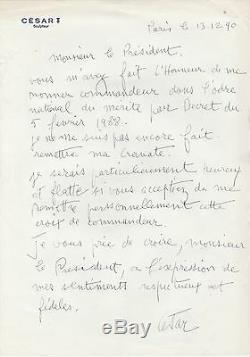 CÉSAR
Sculpteur
Paris le 13.12.90
Monsieur le Président.
vous m'avez fait l'Honneur de me
nommer commandeur dans l'odre
national du mérite par Decret du
5 février 1988.
je ne me suis pas encore fait
remettre ma cravate.
je serais particulièrement heureux
et flatté si vous acceptiez de me
remettre personnellement cette
croix de commandeur.
Je vous prie de croire, monsieur
le Président, a l'expression de
mes sentiments respectueux et
fideles.
César
withCollectibles.com